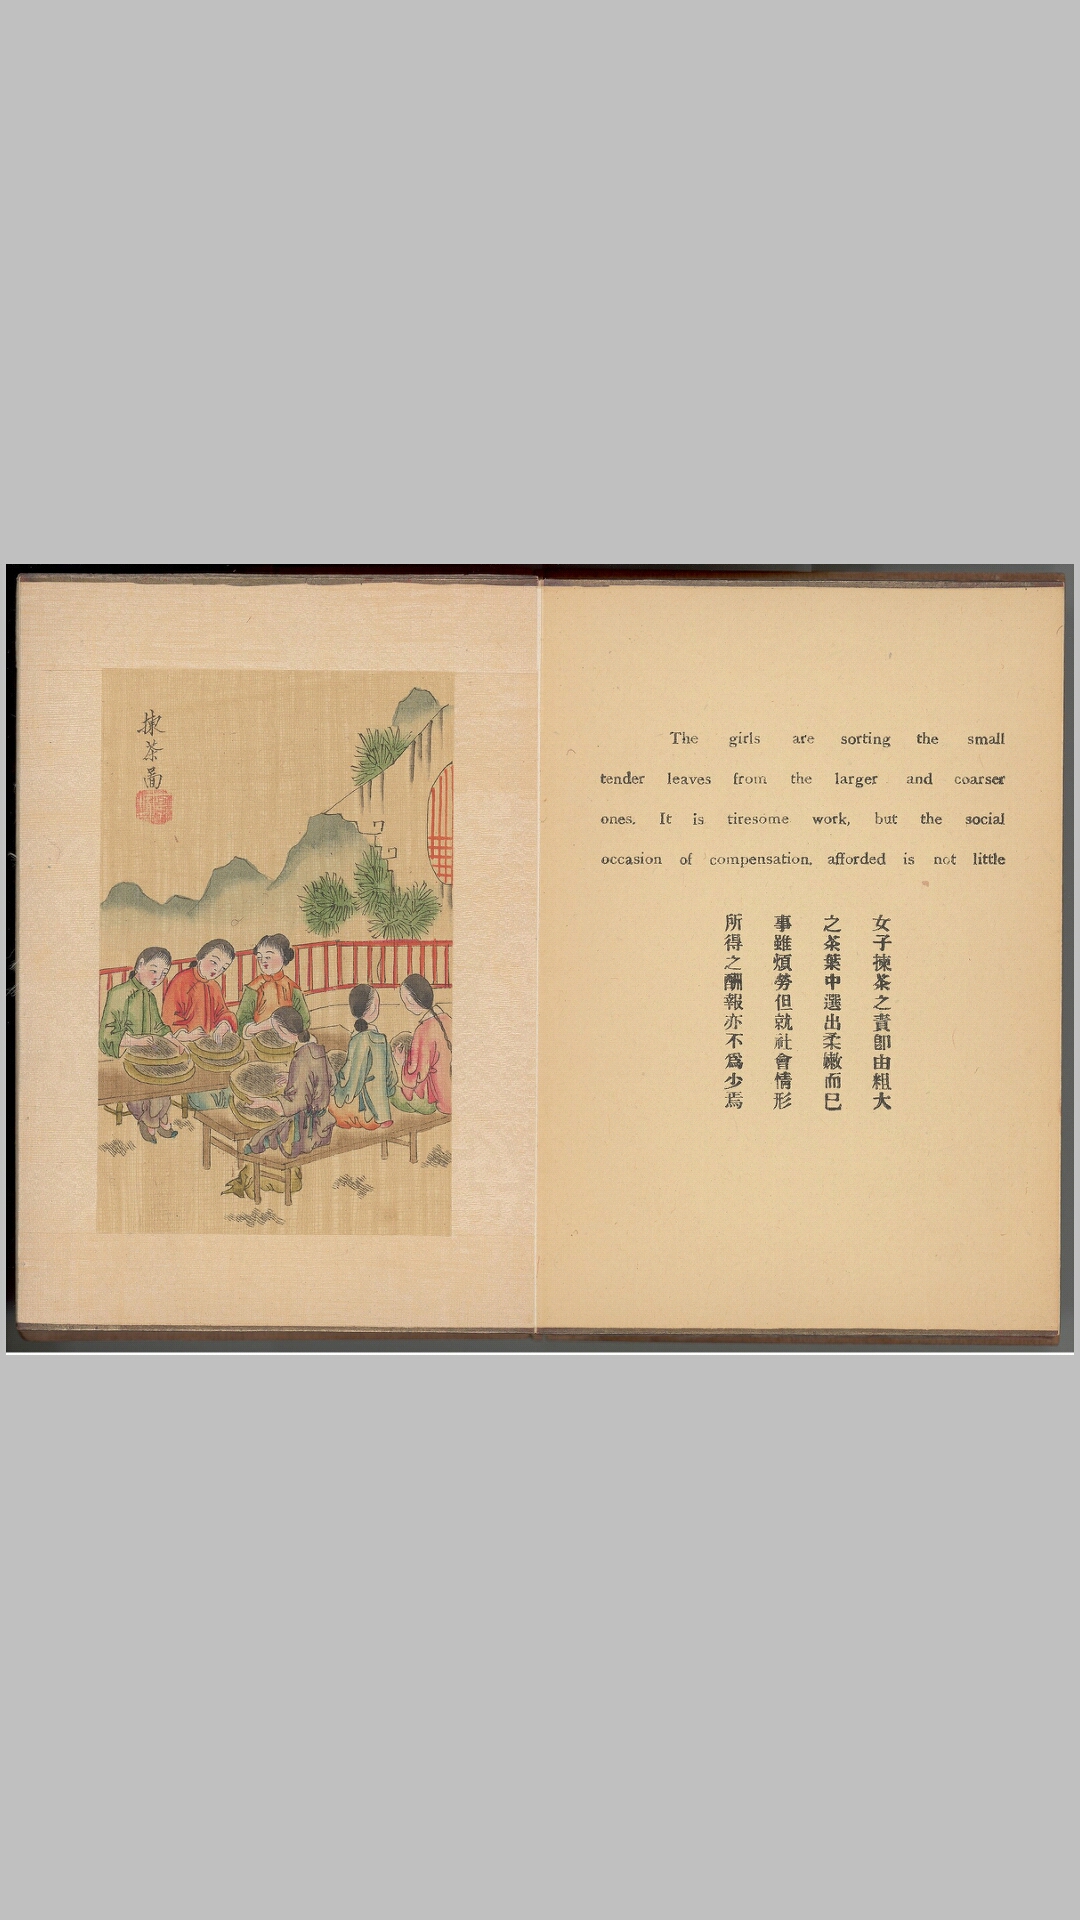 揀茶圖
The girls are sorting the small
tender leaves from the larger and coarser
ones. It is tiresome work, but the social
occasion of compensation. afforded is not little
女子揀茶之責卽由粗大
之茶葉中選出柔嫩而已
事雖煩勞但就社會情形
所得之酬報亦不爲少焉